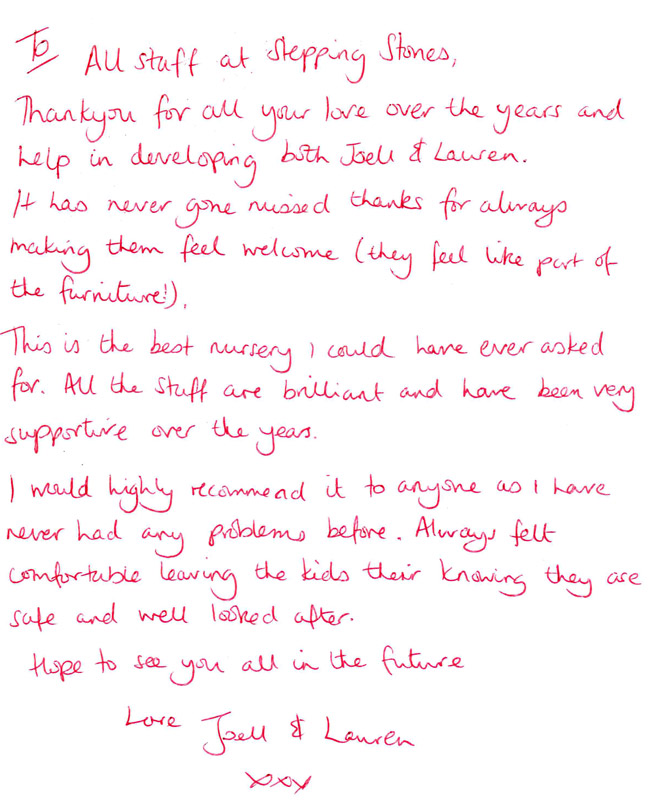 To
All staff at Stepping Stones,
Thankyou for all your love over the years and
help in developing both Joell & Lauren.
It has never gone missed thanks for always
making them feel welcome (they feel like part of
the furniture!).
This is the best nursery I could have ever asked
for. All the staff are brilliant and have been very
supportive over the years.
I would highly recommend it to anyone as I have
never had any problems before. Always felt
comfortable leaving the kids their knowing they are
safe and well looked after.
Hope to see you all in the future
Love Joell & Lauren
xxx